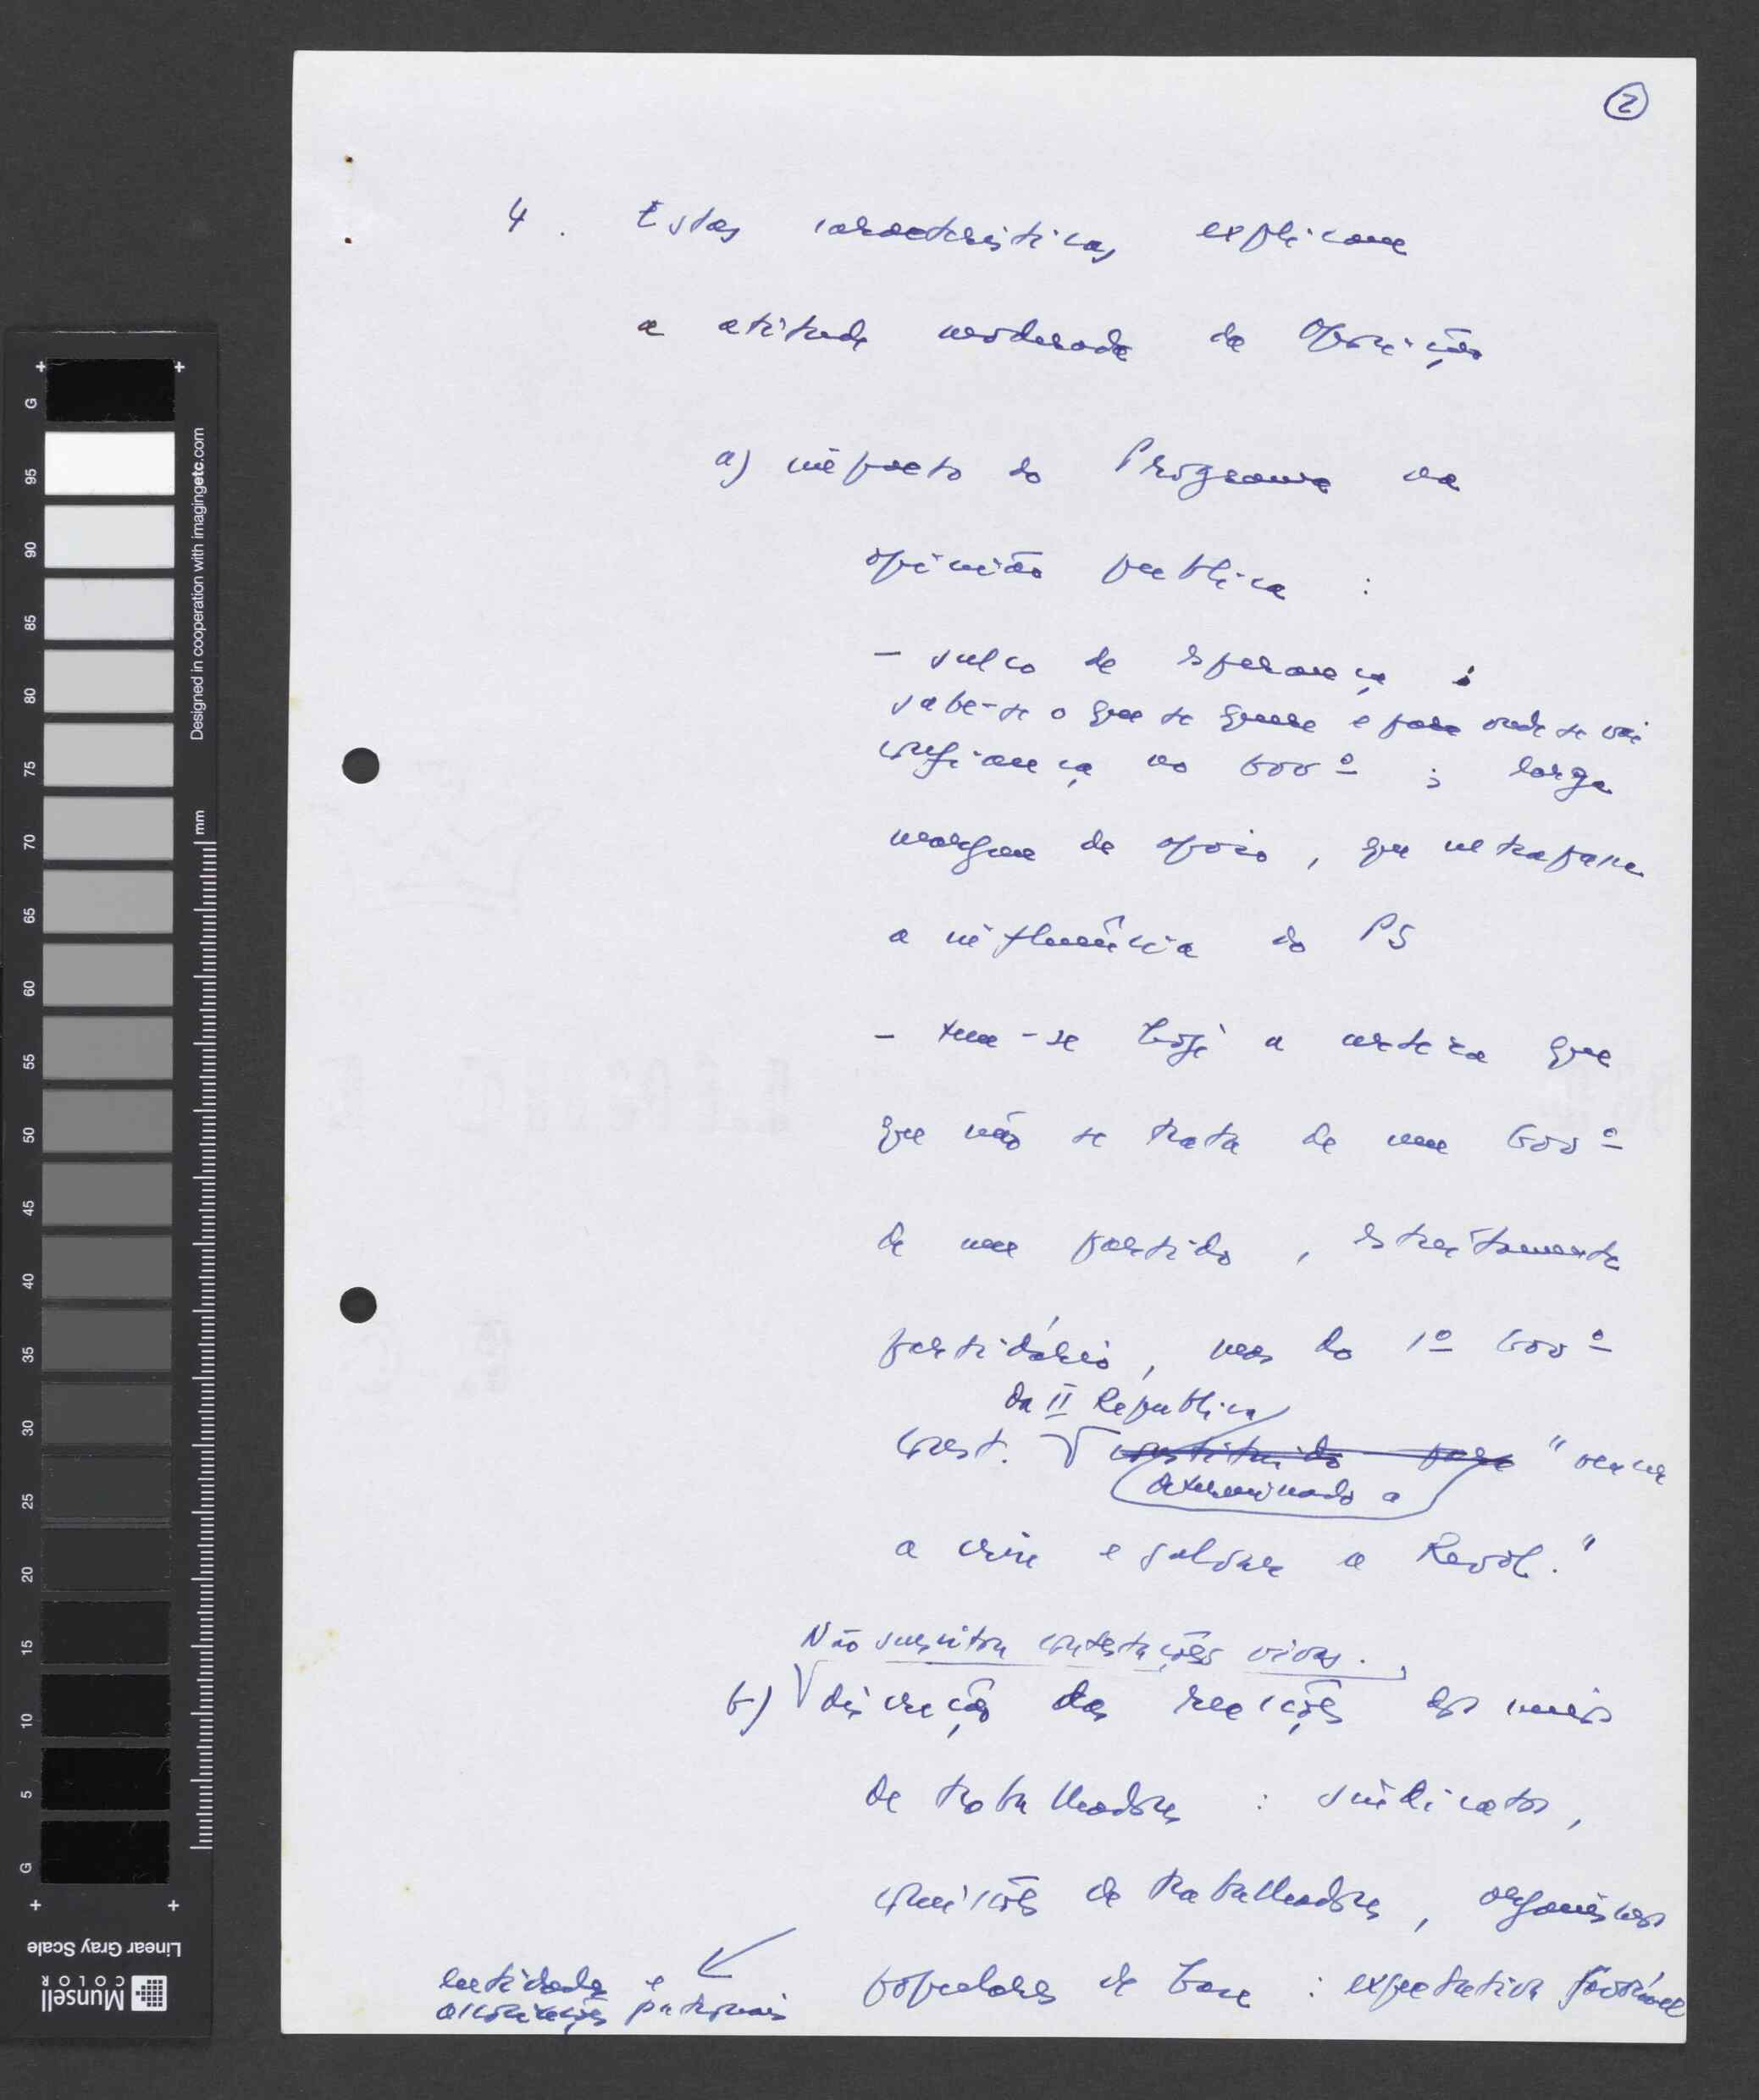 2
4. Estas características explicam
a atitude moderada da Oposição
a) impacto do Programa na
opinião publica :
- sulco de esperança ;
sabe-se o que se quere e para onde se vai
confiança no Govº ; larga
margem de apoio, que ultrapassa
a influência do PS
- tem-se hoje a certeza que
que não se trata de um Govº
de um partido, estreitamente
partidário, mas do 1º Govº
da II Républica
Const. constituido para "vencer
determinado a
a crise e salvar a Revol."
Não suscitou contestações vivas.
b) discreção das reacções dos meios
de trabalhadores : sindicatos,
comissões de trabalhadores, organismos
populares de base : expectativa favorável
entidades e
associações patronais
G
95
90
85
80
75
70
65
60
55
50
45
40
35
30
25
20
15
10
5
G
mm
Designed in cooperation with imagingetc.com
Linear Gray Scale
Munsell
COLOR